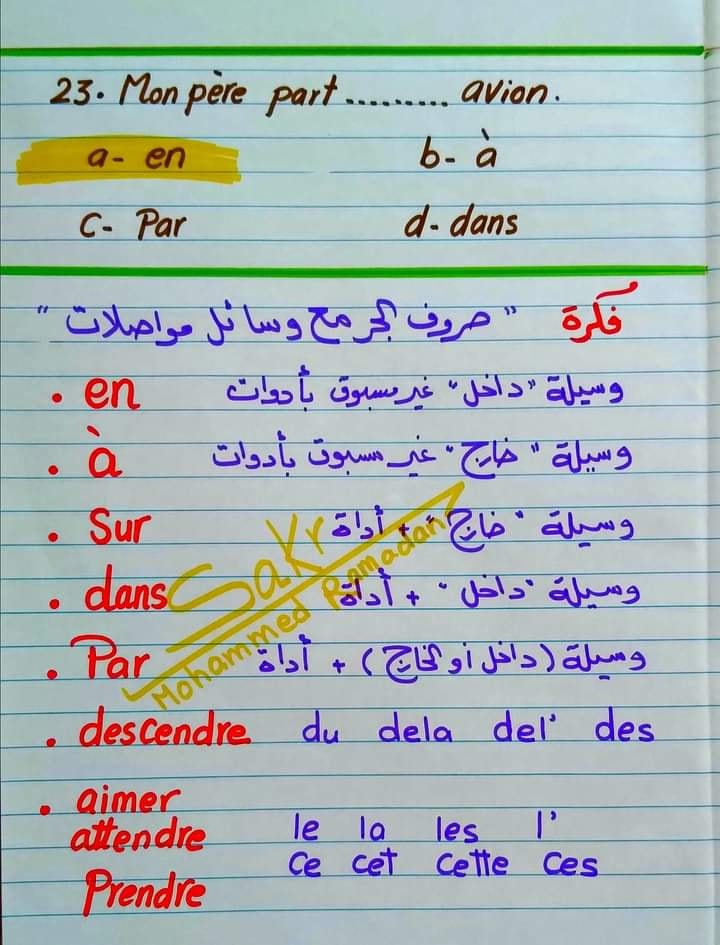 23. Mon père part ......... avion.
a- en b- à
C- Par d- dans
فكرة " حروف الجر مع وسائل مواصلات "
• en وسيلة "داخل" غير مسبوق بأدوات
• à وسيلة "خارج" غير مسبوق بأدوات
• Sur وسيلة "خارج" + أداة
• dans وسيلة "داخل" + أداة
• Par وسيلة (داخل أو الخارج) + أداة
Sakr
Mohammed Ramadan
• descendre du dela del' des
• aimer
attendre le la les l'
Prendre ce cet cette ces